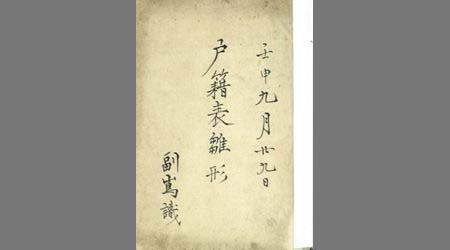 壬申九月廿九日
戸籍表雛形
副嶌識